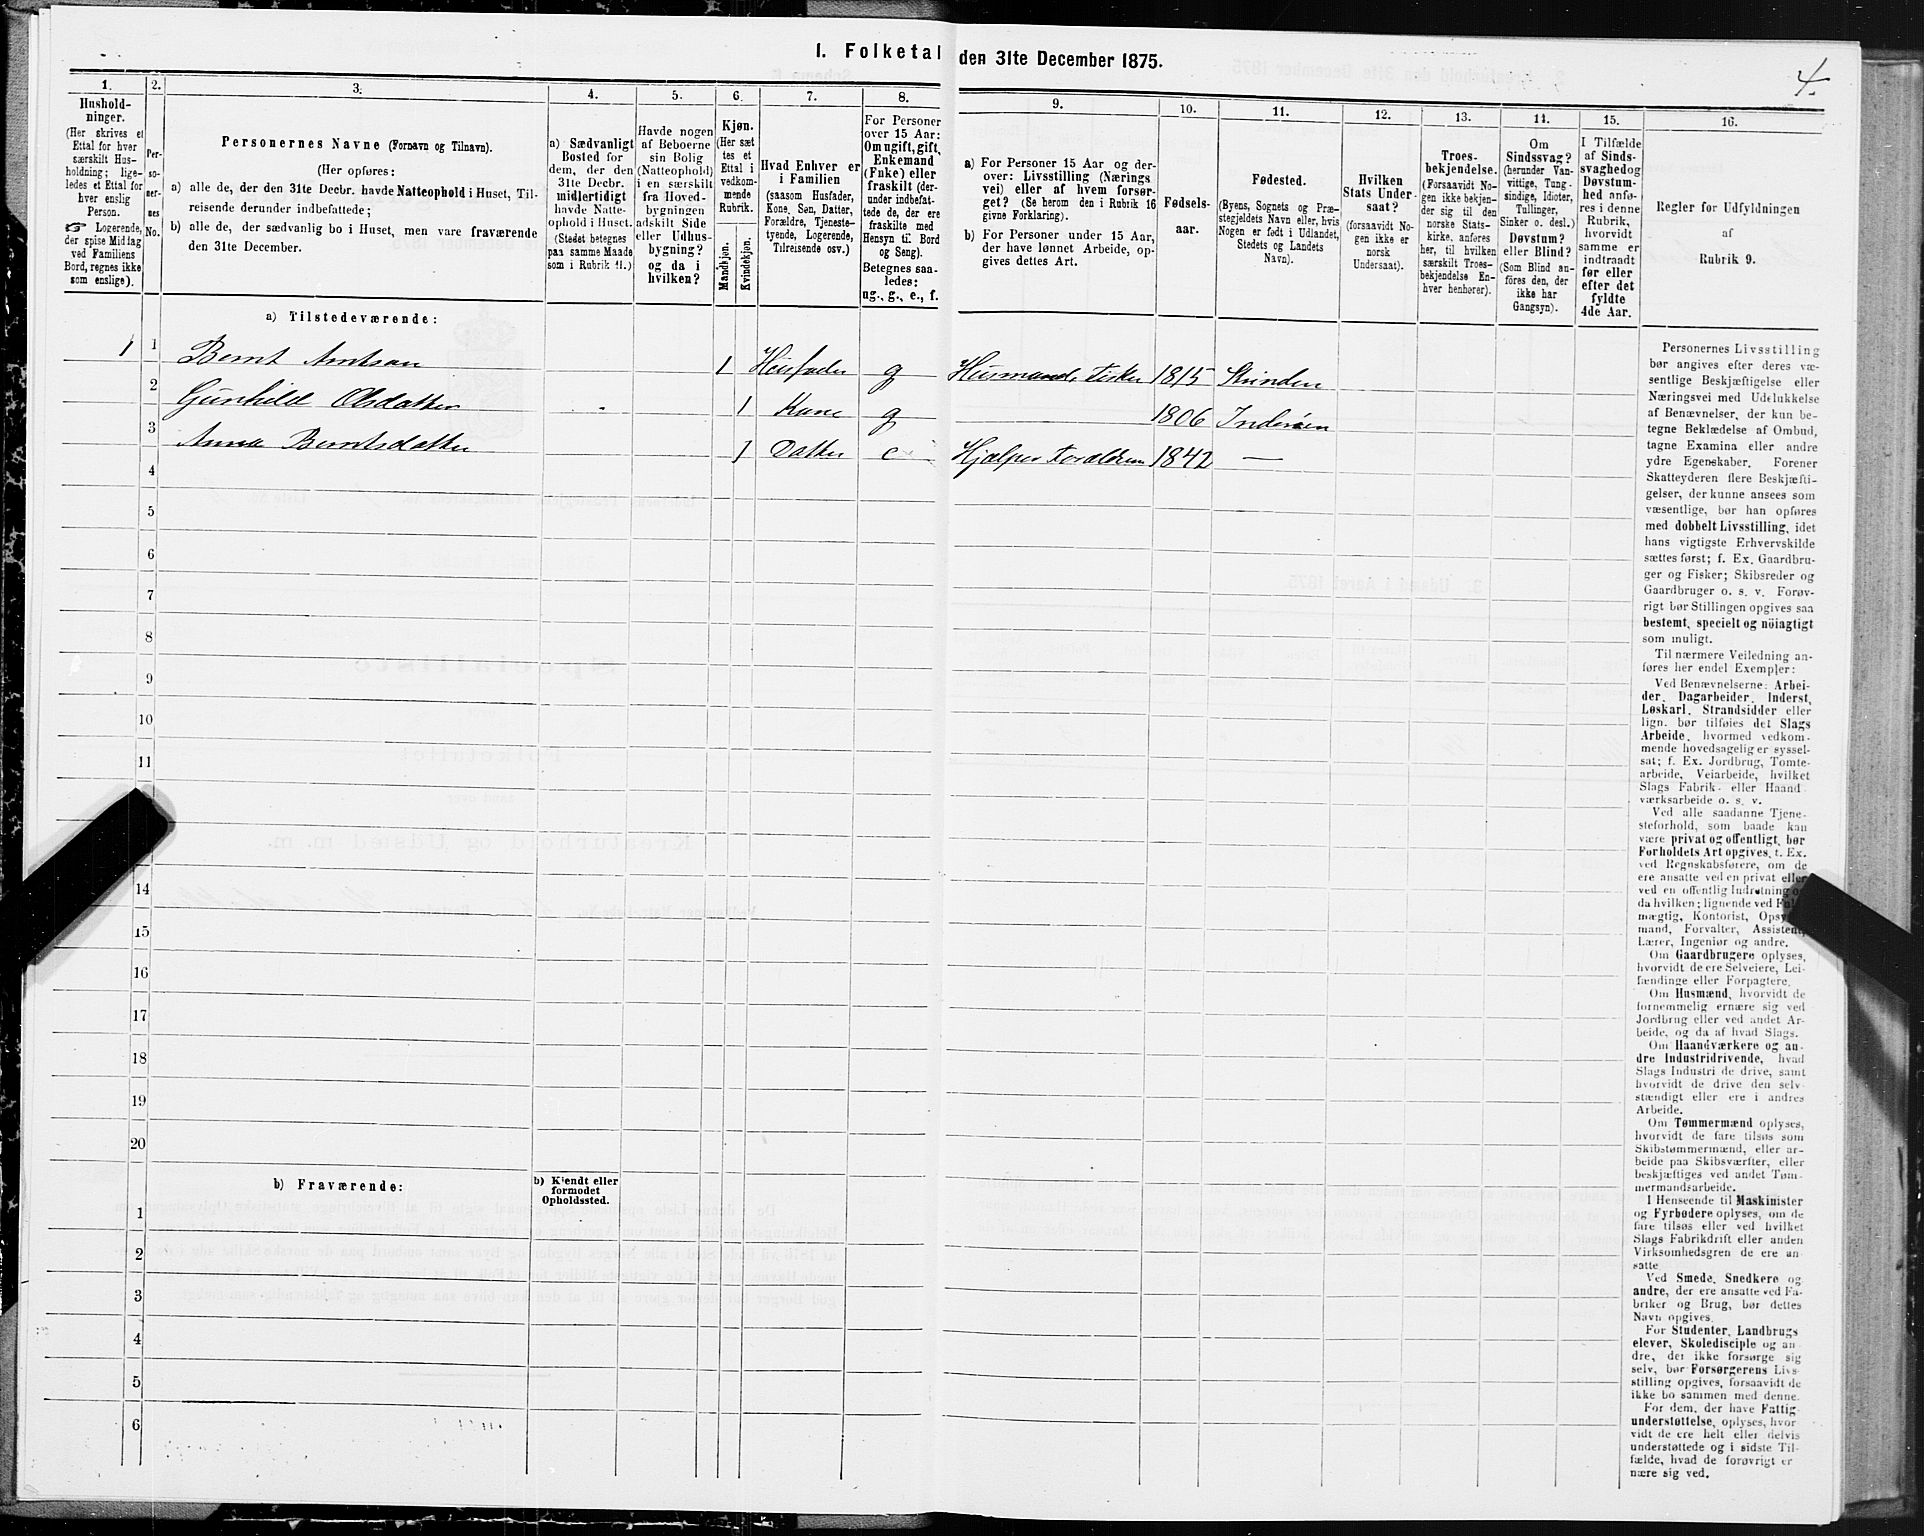 I. Folketal den 31te December 1875.
4.
1.
Hushold-
ninger.
(Her skrives et
Ettal for hver
særskilt Hus-
holdning; lige-
ledes et Ettal for
hver enslig
Person.
☞ Logerende,
der spise Middag
ved Familiens
Bord, regnes ikke
som enslige).
2.
Per-
so-
ner-
nes
No.
3.
Personernes Navne (Fornavn og Tilnavn).
(Her opføres:
a) alle de, der den 31te Decbr. havde Natteophold i Huset, Til-
reisende derunder indbefattede;
b) alle de, der sædvanlig bo i Huset, men vare fraværende
den 31te December.
4.
a) Sædvanligt
Bosted for
dem, der den
31te Decbr.
midlertidigt
havde Natte-
ophold i Huset.
(Stedet betegnes
paa samme Maade
som i Rubrik 11.)
5.
Havde nogen
af Beboerne
sin Bolig
(Natteophold)
i en særskilt
fra Hoved-
bygningen
adskilt Side
eller Udhus-
bygning?
og da i
hvilken?
6.
Kjøn.
(Her sæt
tes et
Ettal i
vedkom-
mende
Rubrik.
Mandkjøn.
Kvindekjøn.
7.
Hvad Enhver er
i Familien
(saasom Husfader,
Kone, Søn, Datter,
Forældre, Tjeneste-
tyende, Logerende,
Tilreisende osv.)
8.
For Personer
over 15 Aar:
Om ugift, gift,
Enkemand
(Enke) eller
fraskilt (der-
under indbefat-
tede de, der ere
fraskilte med
Hensyn til Bord
og Seng).
Betegnes saa-
ledes:
ug., g., e., f.
9.
a) For Personer 15 Aar og der-
over: Livsstilling (Nærings
vei) eller af hvem forsør-
get? (Se herom den i Rubrik 16
givne Forklaring).
b) For Personer under 15 Aar,
der have lønnet Arbeide, op-
gives dettes Art.
10.
Fødsels-
aar.
11.
Fødested.
(Byens, Sognets og Præ-
stegjeldets Navn eller, hvis
Nogen er født i Udlandet,
Stedets og Landets
Navn).
12.
Hvilken
Stats Under-
saat?
(forsaavidt No-
gen ikke er
norsk
Undersaat).
13.
Troes-
bekjendelse.
(Forsaavidt No-
gen ikke bekjen-
der sig til den
norske Stats-
kirke, anføres
her, til hvilken
særskilt Troes-
bekjendelse En-
hver henhører).
14.
Om
Sindssvag?
(herunder Van-
vittige, Tung-
sindige, Idioter,
Tullinger,
Sinker o. desl.)
Døvstum?
eller Blind?
(Som Blind an-
føres den, der
ikke har
Gangsyn).
15.
I Tilfælde
af Sinds-
svaghed og
Døvstum-
hed anfø-
res i denne
Rubrik,
hvorvidt
samme er
indtraadt
før eller
efter det
fyldte
4de Aar.
16.
Regler for Udfyldningen
af
Rubrik 9.
a) Tilstedeværende:
1 1 Bernt Arntsen 1 Husfader g Husmand, Fisker 1815 Strinden
2 Gunhild Olsdatter 1 Kone g 1806 Inderøen
3 Anna Berntsdatter 1 Datter e Hjælper Forældrene 1842 —
4
5
6
7
8
9
10
11
14
15
16
17
18
19
20
b) Fraværende:
b) Kjendt eller
formodet
Opholdssted.
1
2
3
4
5
6
Personernes Livsstilling
bør angives efter deres væ-
sentlige Beskjæftigelse eller
Næringsvei med Udelukkelse
af Benævnelser, der kun be-
tegne Beklædelse af Ombud,
tagne Examina eller andre
ydre Egenskaber. Forener
Skatteyderen flere Beskjæfti-
gelser, der kunne ansees som
væsentlige, bør han opføres
med dobbelt Livsstilling, idet
hans vigtigste Erhvervskilde
sættes først; f. Ex. Gaardbru-
ger og Fisker; Skibsreder og
Gaardbruger o. s. v. Forøv-
rigt bør Stillingen opgives saa
bestemt, specielt og nöiagtigt
som muligt.
Til nærmere Veiledning an-
føres her endel Exempler:
Ved Benævnelserne: Arbei-
der, Dagarbeider, Inderst,
Løskarl, Strandsidder eller
lign. bør tilføies det Slags
Arbeide, hvormed vedkom-
mende hovedsagelig er syssel-
sat; f. Ex. Jordbrug, Tomte-
arbeide, Veiarbeide, hvilket
Slags Fabrik- eller Haand-
værksarbeide o. s. v.
Ved alle saadanne Tjene-
steforhold, som baade kan
være privat og offentligt, bør
Forholdets Art opgives, t. Ex.
ved Regnskabsførere, om de
ere ansatte ved en privat eller
ved en offentlig Indretning og
da hvilken; lignende ved Fuld-
mægtig, Kontorist, Opsyns-
mand, Forvalter, Assistent,
Lærer, Ingeniør og andre.
Om Gaardbrugere oplyses,
hvorvidt de ere Selveiere, Lei-
lændinge eller Forpagtere.
Om Husmænd, hvorvidt de
fornemmelig ernære sig ved
Jordbrug eller ved andet Ar-
beide, og da af hvad Slags.
Om Haandværkere og an-
dre Industridrivende, hvad
Slags Industri de drive, samt
hvorvidt de drive den selv-
stændigt eller ere i andres
Arbeide.
Om Tømmermænd oplyses,
hvorvidt de fare tilsøs som
Skibstømmermænd, eller ar-
beide paa Skibsværfter, eller
beskjæftiges ved andet Tøm-
mermandsarbeide.
I Henseende til Maskinister
og Fyrbødere oplyses, om de
fare tilsøs eller ved hvilket
Slags Fabrikdrift eller anden
Virksomhedsgren de ere an-
satte
Ved Smede, Snedkere og
andre, der ere ansatte ved Fa-
briker og Brug, bør dettes
Navn opgives.
For Studenter, Landbrugs
elever, Skoledisciple og an
dre, der ikke forsørge sig
selv, bør Forsørgerens Livs-
stilling opgives, forsaavidt de
ikke bo sammen med denne.
For dem, der have Fattig
understøttelse, oplyses, hvor
vidt de ere helt eller delvis
understøttede og i sidste Til-
fælde, hvad de forøvrigt er
nære sig ved.